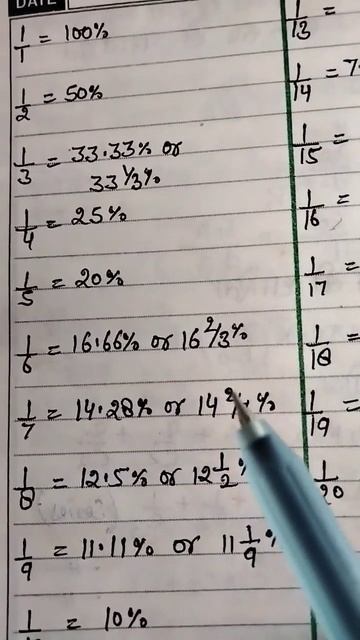 DATE
1/1 = 100%
1/2 = 50%
1/3 = 33.33% or
33 1/3%
1/4 = 25%
1/5 = 20%
1/6 = 16.66% or 16 2/3%
1/7 = 14.28% or 14 2/ %
1/8 = 12.5% or 12 1/2 %
1/9 = 11.11% or 11 1/9 %
= 10%
1/13 =
1/14 = 7.
1/15 =
1/16 =
1/17 =
1/18 =
1/19 =
1/20